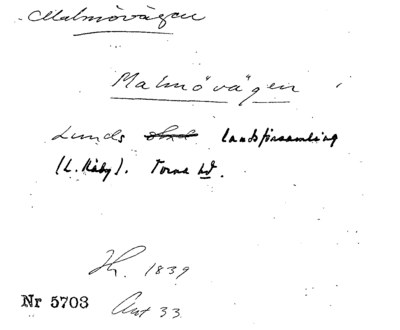 Malmövägen
Malmövägen
Lunds landsförsamling
(L. Råby). Torna hd.
1839
Nr 5703 33